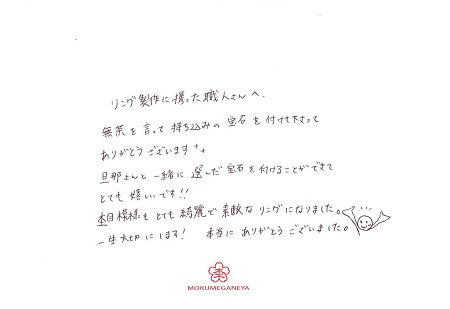 リング製作に携った職人さんへ.
無茶を言って持ち込みの宝石を付けて下さって
ありがとうございます
旦那さんと一緒に選んだ宝石を付けることができて
とても嬉しいです!!
杢目模様もとても綺麗で素敵なリングになりました。
一生大切にします! 本当にありがとうございました。
MOKUMEGANEYA